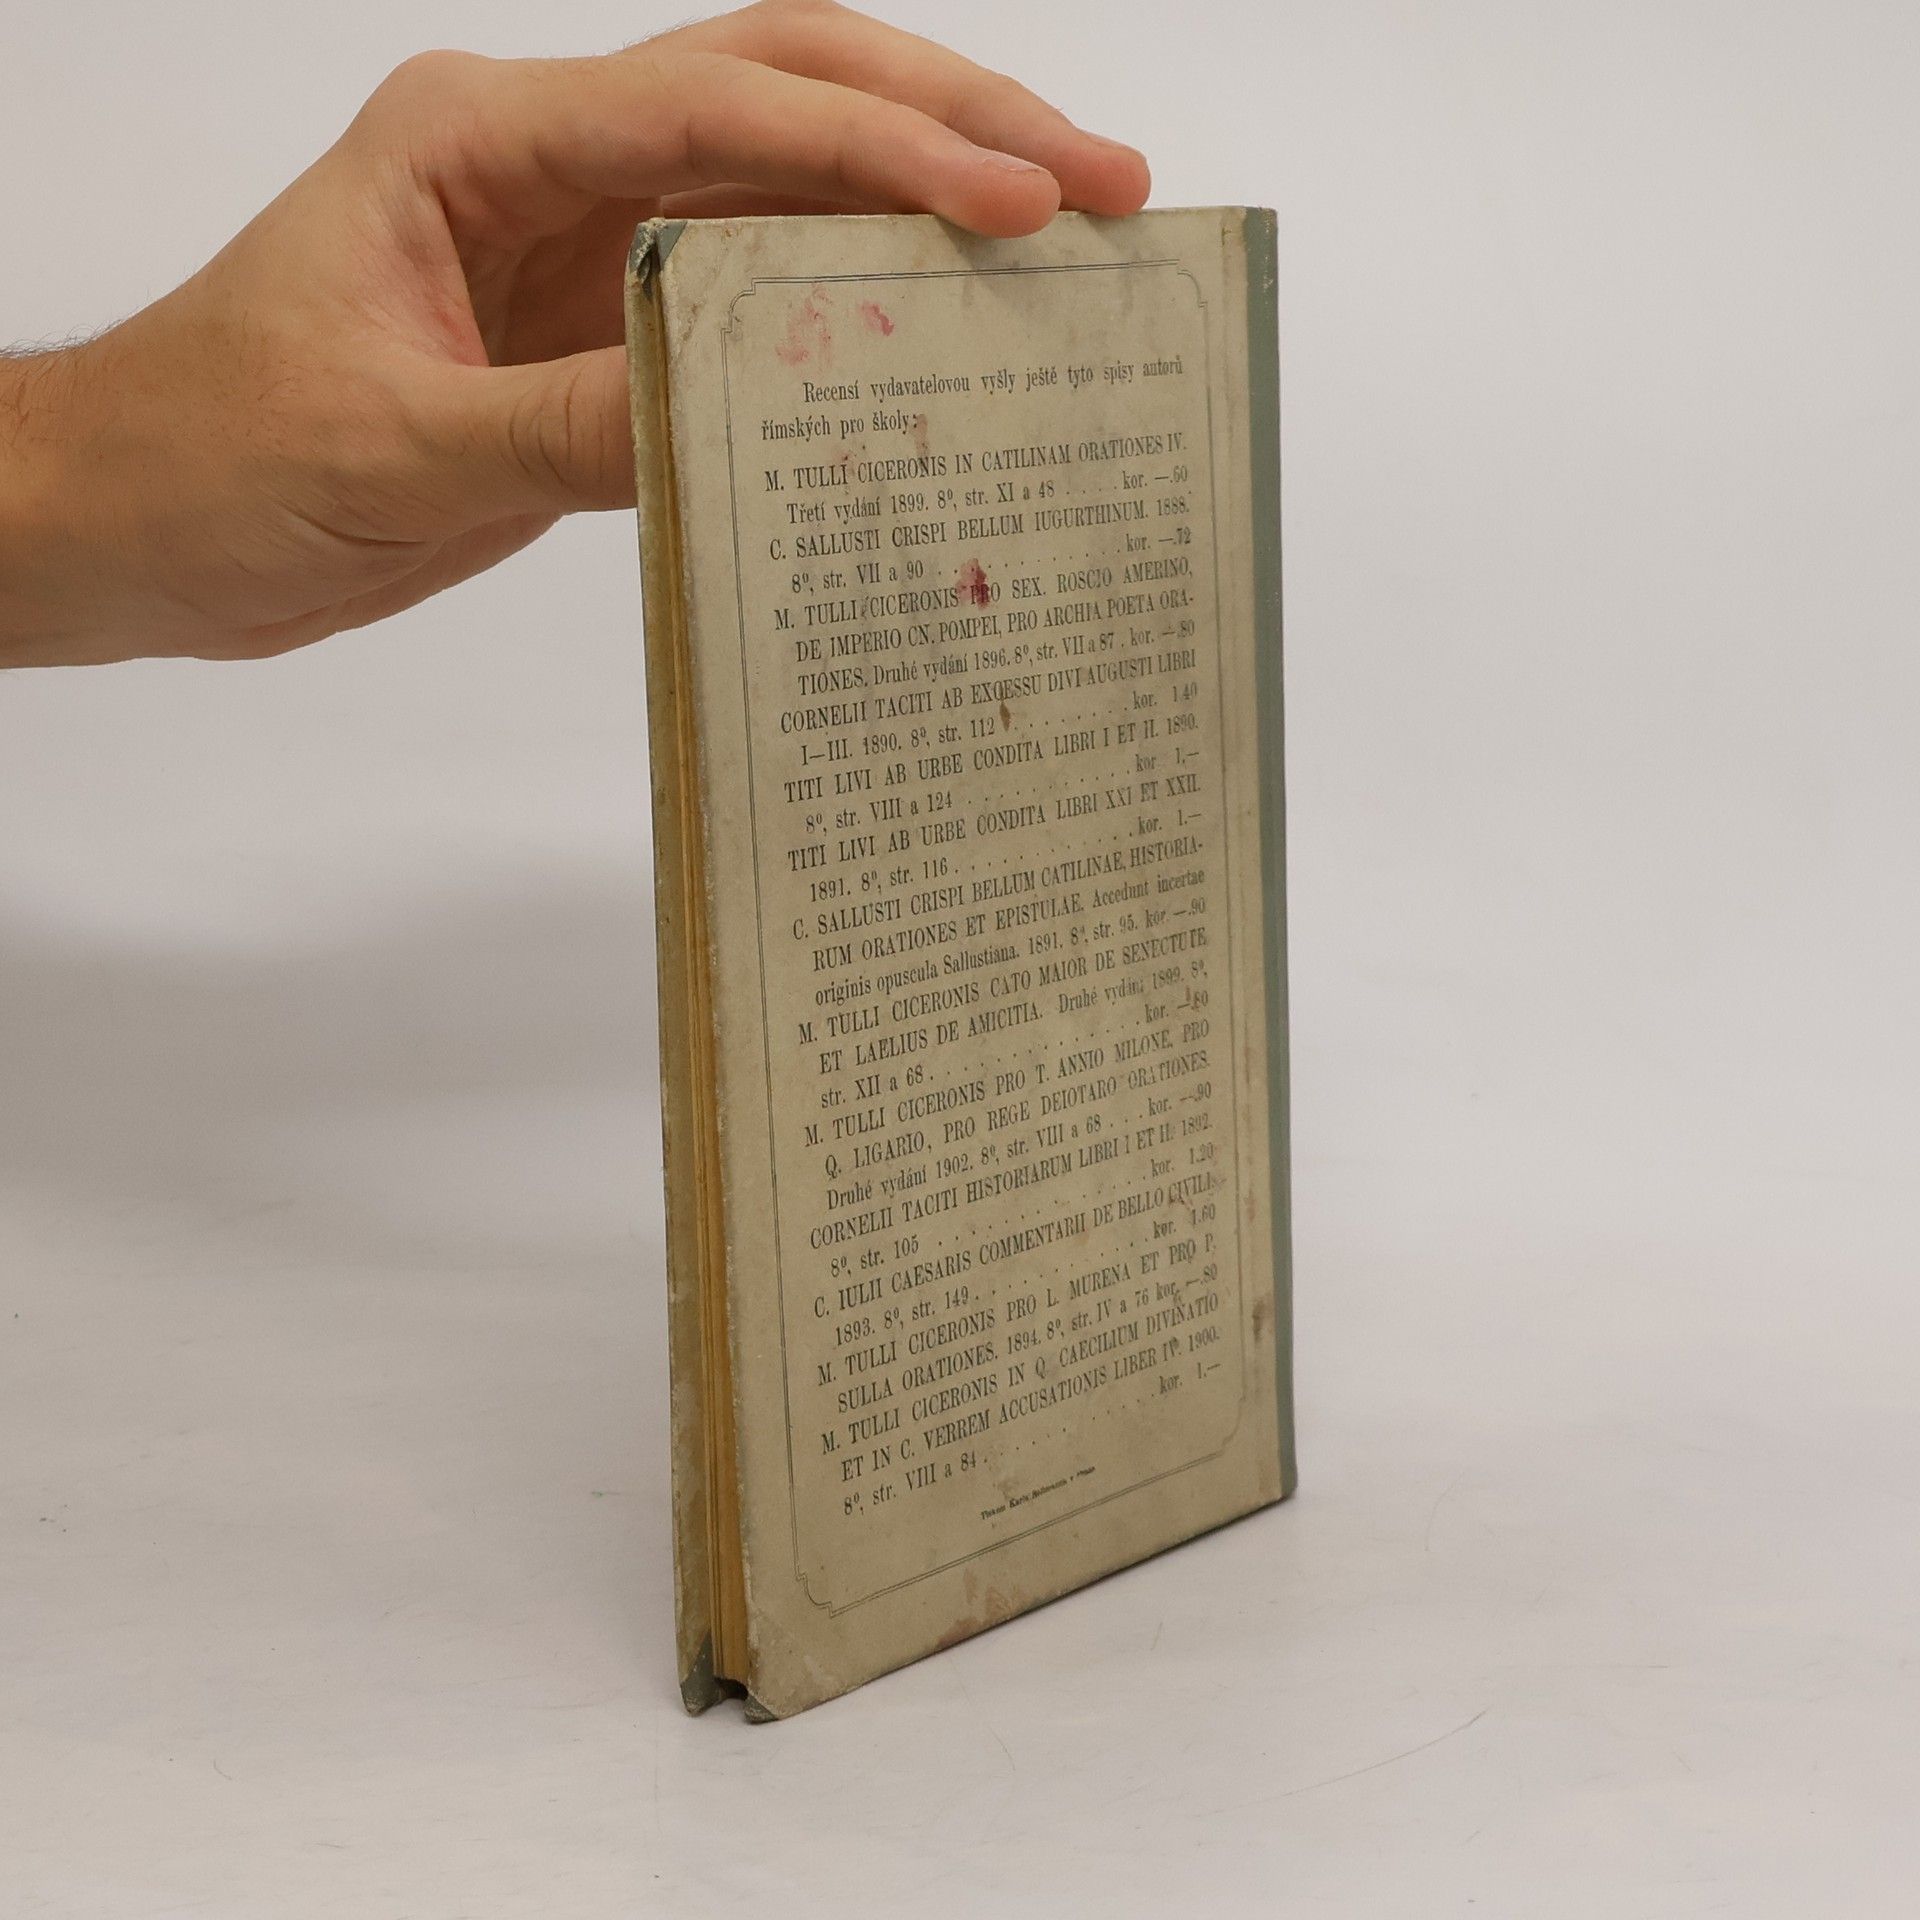 Recensí vydavatelovou vyšly ještě tyto spisy autorů
římských pro školy:
M. TULLI CICERONIS IN CATILINAM ORATIONES IV.
Třetí vydání 1899. 8º, str. XI a 48 . . . . kor. —.60
C. SALLUSTI CRISPI BELLUM IUGURTHINUM. 1888.
8º, str. VII a 90 . . . . . . . . . . . kor. —.72
M. TULLI CICERONIS PRO SEX. ROSCIO AMERINO,
DE IMPERIO CN. POMPEI, PRO ARCHIA POETA ORA-
TIONES. Druhé vydání 1896. 8º, str. VII a 87 . kor. —.80
CORNELII TACITI AB EXCESSU DIVI AUGUSTI LIBRI
I—III. 1890. 8º, str. 112 . . . . . . . . kor. 1.40
TITI LIVI AB URBE CONDITA LIBRI I ET II. 1890.
8º, str. VIII a 124 . . . . . . . . . . . kor. 1.—
TITI LIVI AB URBE CONDITA LIBRI XXI ET XXII.
1891. 8º, str. 116 . . . . . . . . . . . . kor. 1.—
C. SALLUSTI CRISPI BELLUM CATILINAE, HISTORIA-
RUM ORATIONES ET EPISTULAE. Accedunt incertae
originis opuscula Sallustiana. 1891. 8º, str. 95. kor. —.90
M. TULLI CICERONIS CATO MAIOR DE SENECTUTE
ET LAELIUS DE AMICITIA. Druhé vydání 1899. 8º,
str. XII a 68 . . . . . . . . . . . . . kor. —.80
M. TULLI CICERONIS PRO T. ANNIO MILONE, PRO
Q. LIGARIO, PRO REGE DEIOTARO ORATIONES.
Druhé vydání 1902. 8º, str. VIII a 68 . . . kor. —.90
CORNELII TACITI HISTORIARUM LIBRI I ET II. 1892.
8º, str. 105 . . . . . . . . . . . . . kor. 1.20
C. IULII CAESARIS COMMENTARII DE BELLO CIVILI.
1893. 8º, str. 149 . . . . . . . . . . . kor. 1.60
M. TULLI CICERONIS PRO L. MURENA ET PRO P.
SULLA ORATIONES. 1894. 8º, str. IV a 76 kor. —.80
M. TULLI CICERONIS IN Q. CAECILIUM DIVINATIO
ET IN C. VERREM ACCUSATIONIS LIBER IV. 1900.
8º, str. VIII a 84 . . . . . . . . . . . kor. 1.—
Tiskem Karla